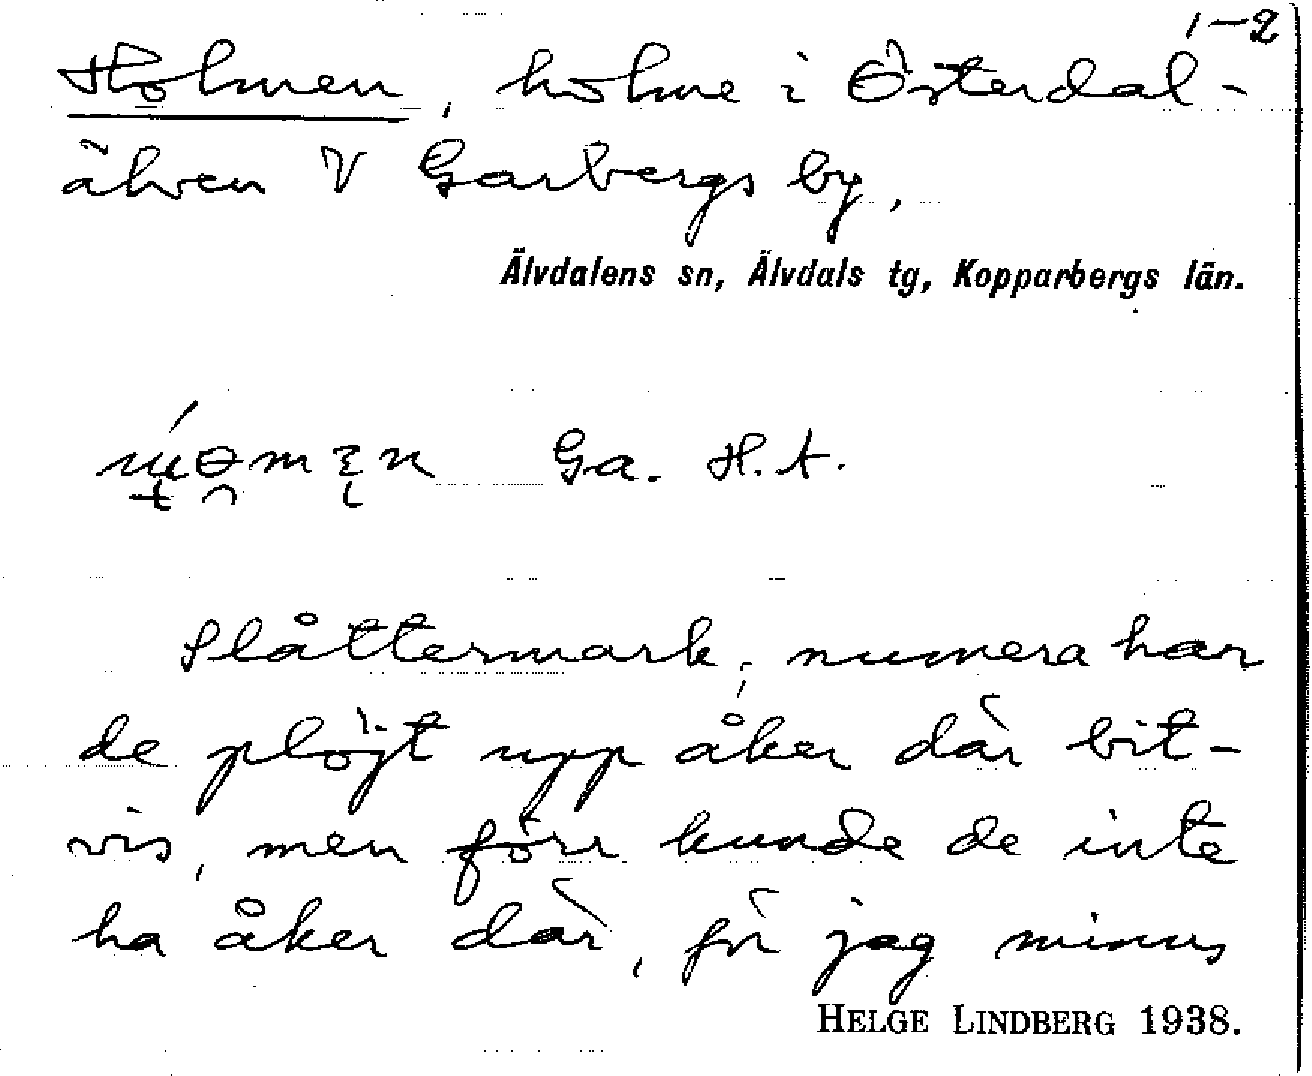 1-2
Holmen, holme i Österdal-
älven V Garbergs by,
Älvdalens sn, Älvdals tg, Kopparbergs län.
Ga. H.A.
Slåttermark; numera har
de plöjt upp åker där bit-
vis, men förr kunde de inte
ha åker där, för jag minns
HELGE LINDBERG 1938.